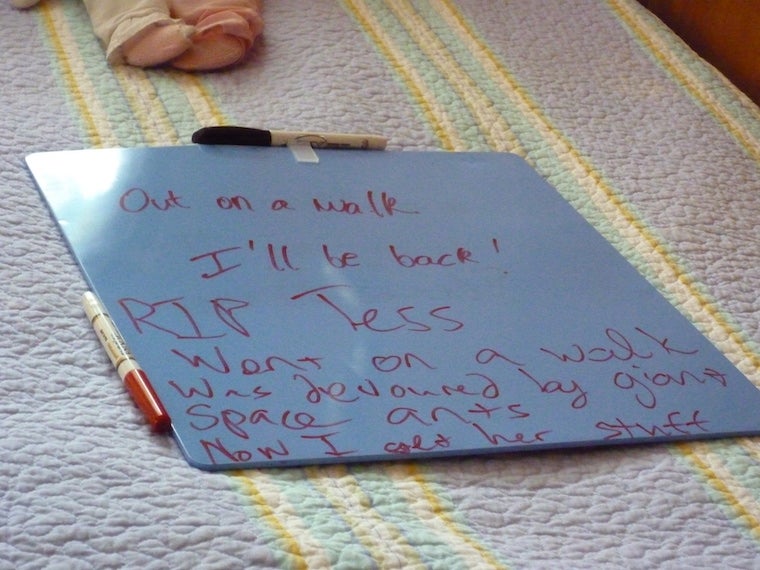 Out on a walk
I'll be back!
RIP Tess
Went on a walk
Was devoured by giant
Space ants
Now I get her stuff